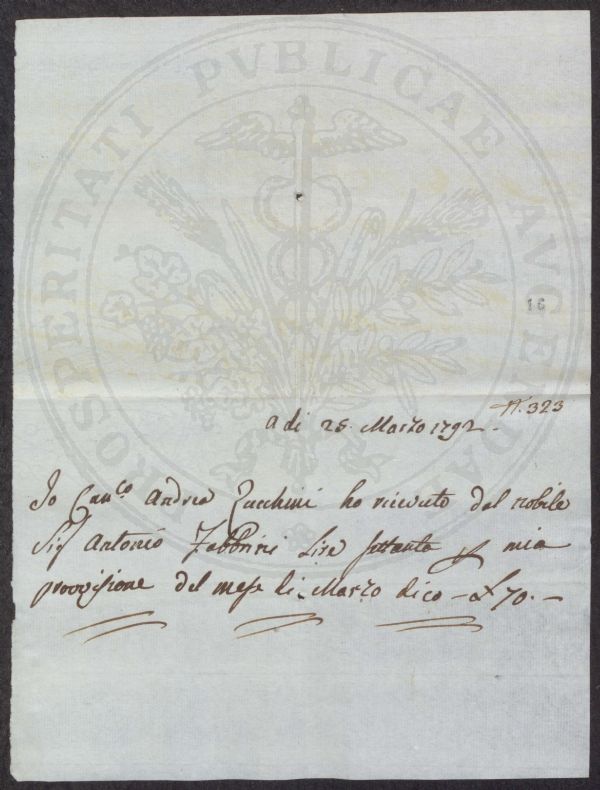 PROSPERITATI PVBLICAE AVGENDAE
16
N. 323
a di 28. Marzo 1792.
Io Can.co Andrea Zucchini ho ricevuto dal nobile
Sig Antonio Fabbrini Lire settanta p mia
provvisione del mese di Marzo dico - £ 70. -